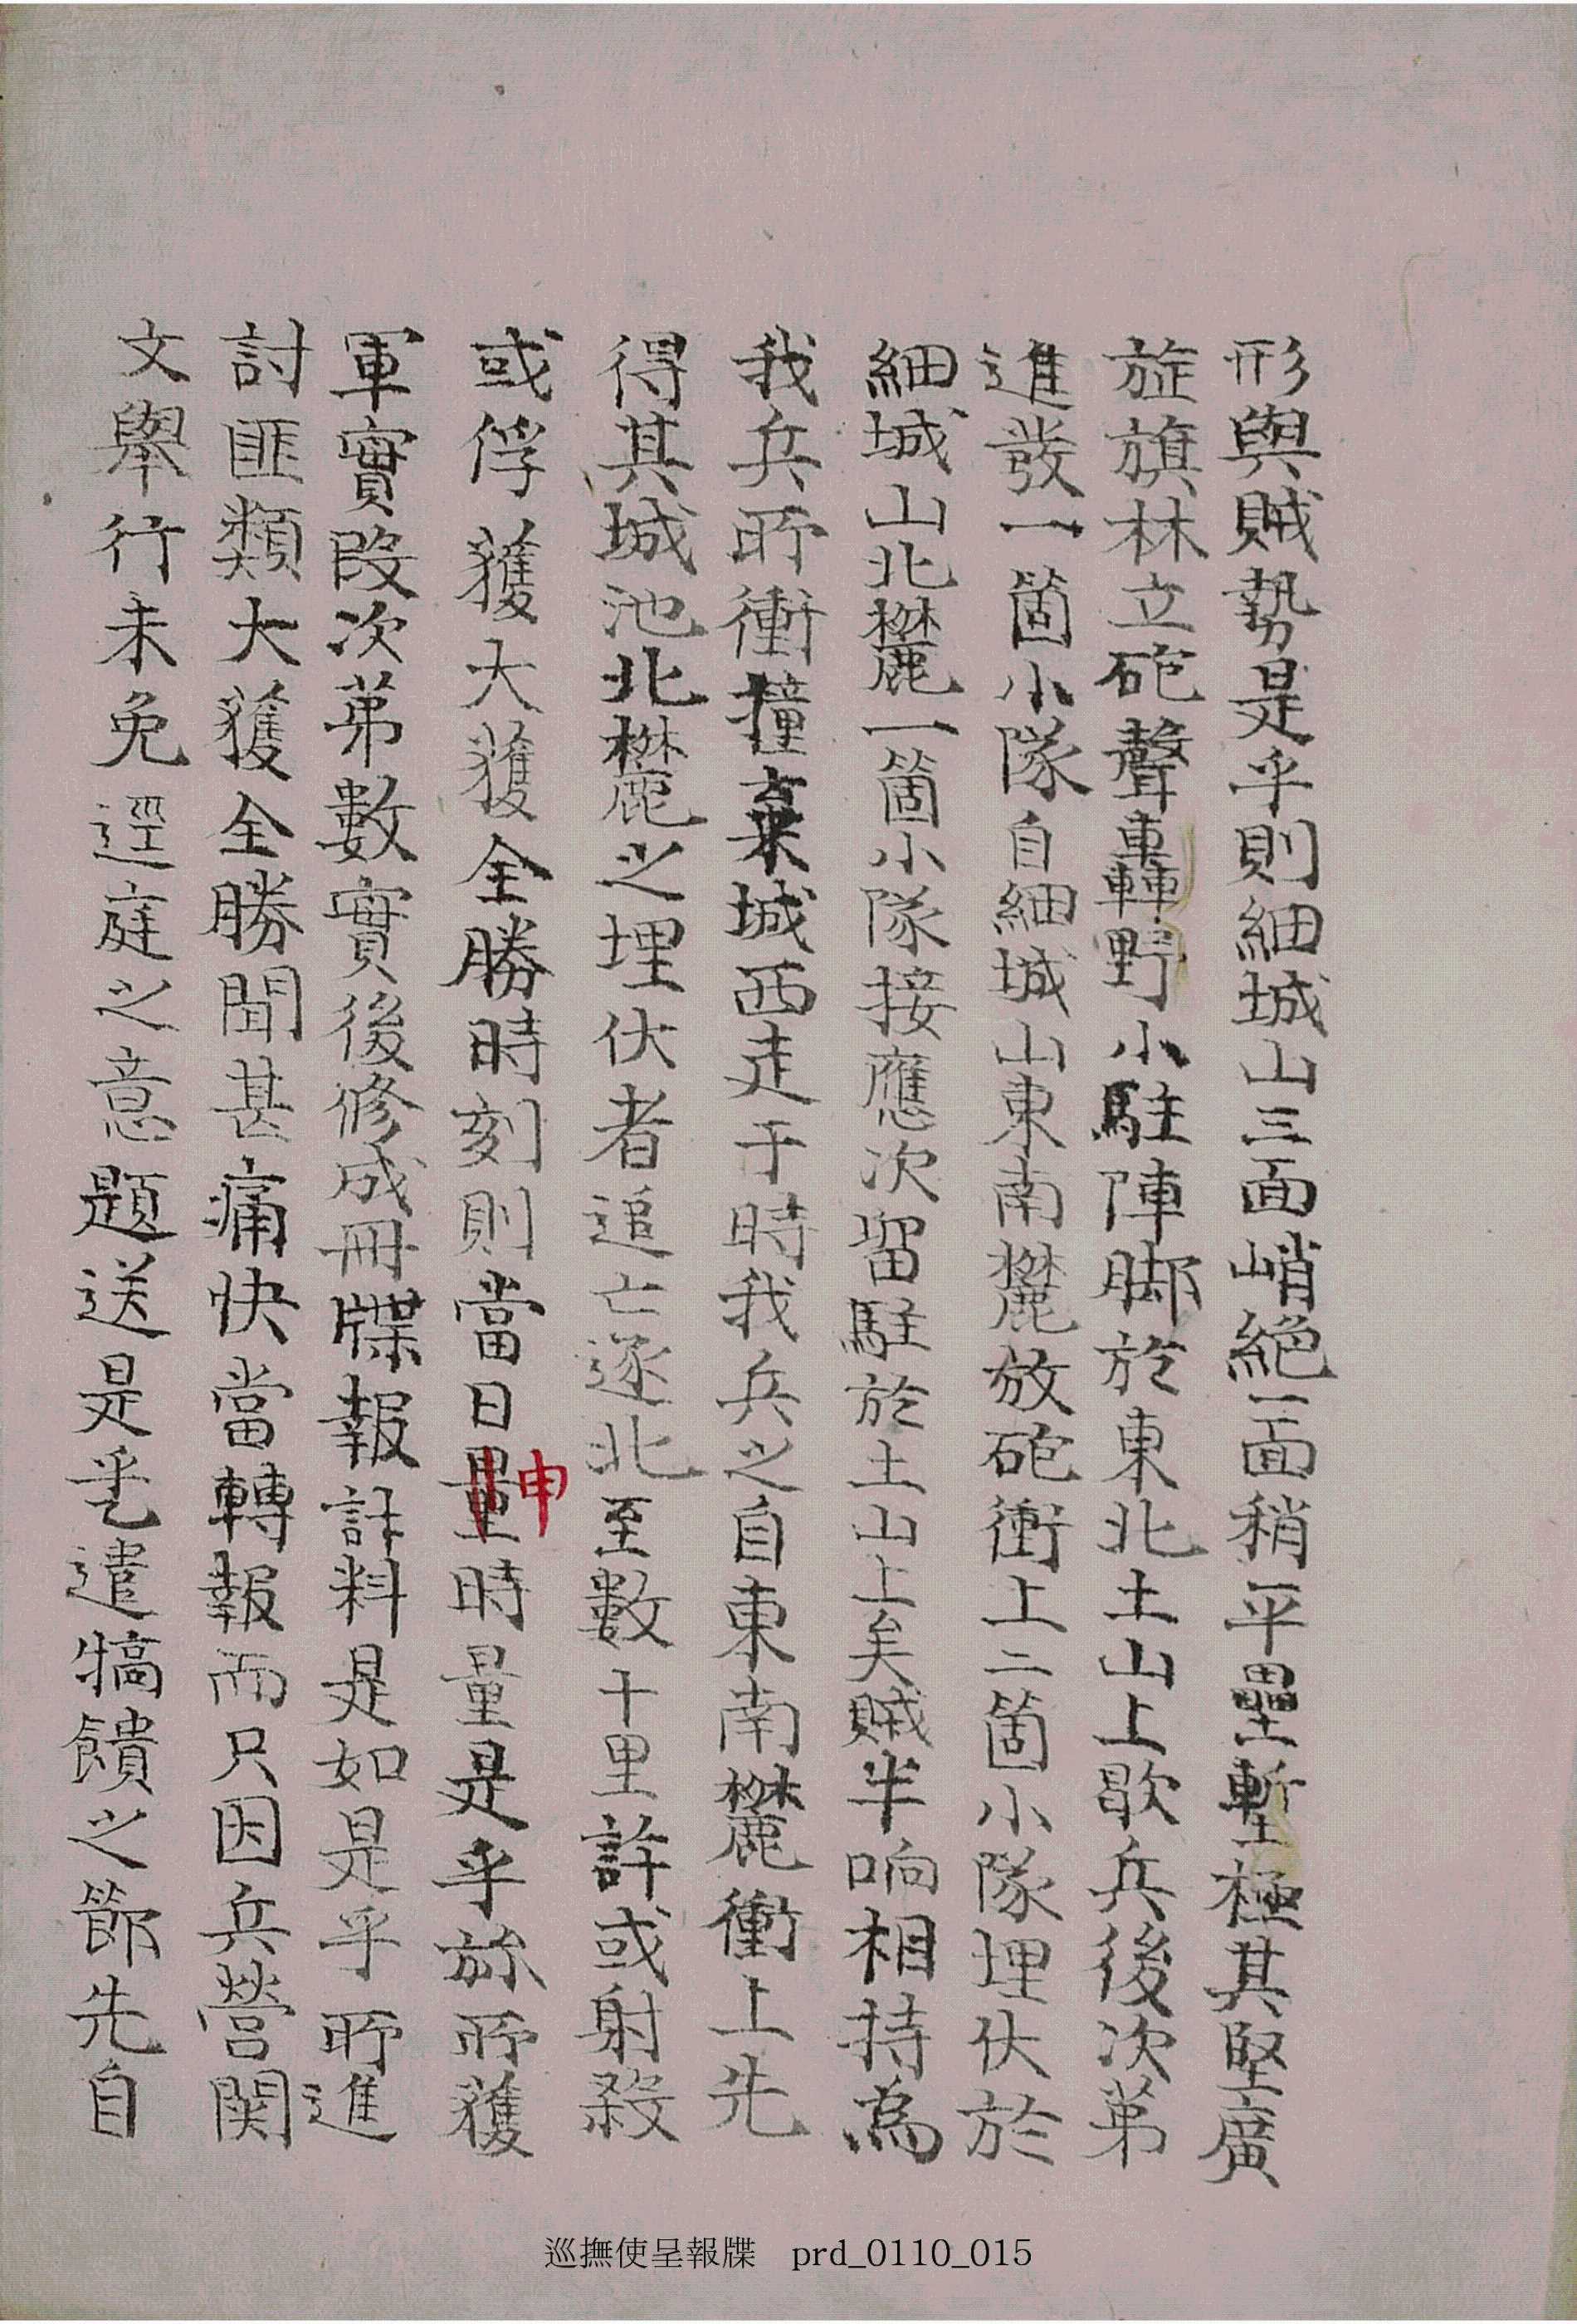 形與賊勢是乎則細城山三面峭絕一面稍平壘塹極其堅廣
旋旗林立砲聲轟野小駐陣脚於東北土山上歇兵後次第
進發一箇小隊自細城山東南麓放砲衝上二箇小隊埋伏於
細城山北麓一箇小隊接應次留駐於土山上矣賊半响相持為
我兵所衝撞棄城西走于時我兵之自東南麓衝上先
得其城池北麓之埋伏者追亡逐北至數十里許或射殺
或俘獲大獲全勝時刻則當日量時量是乎㫆所獲
申
軍實段次第數實後修成冊牒報計料是如是乎所進
討匪類大獲全勝聞甚痛快當轉報而只因兵營関
文舉行未免逕庭之意題送是乎乤遣犒饋之節先自
巡撫使呈報牒 prd_0110_015